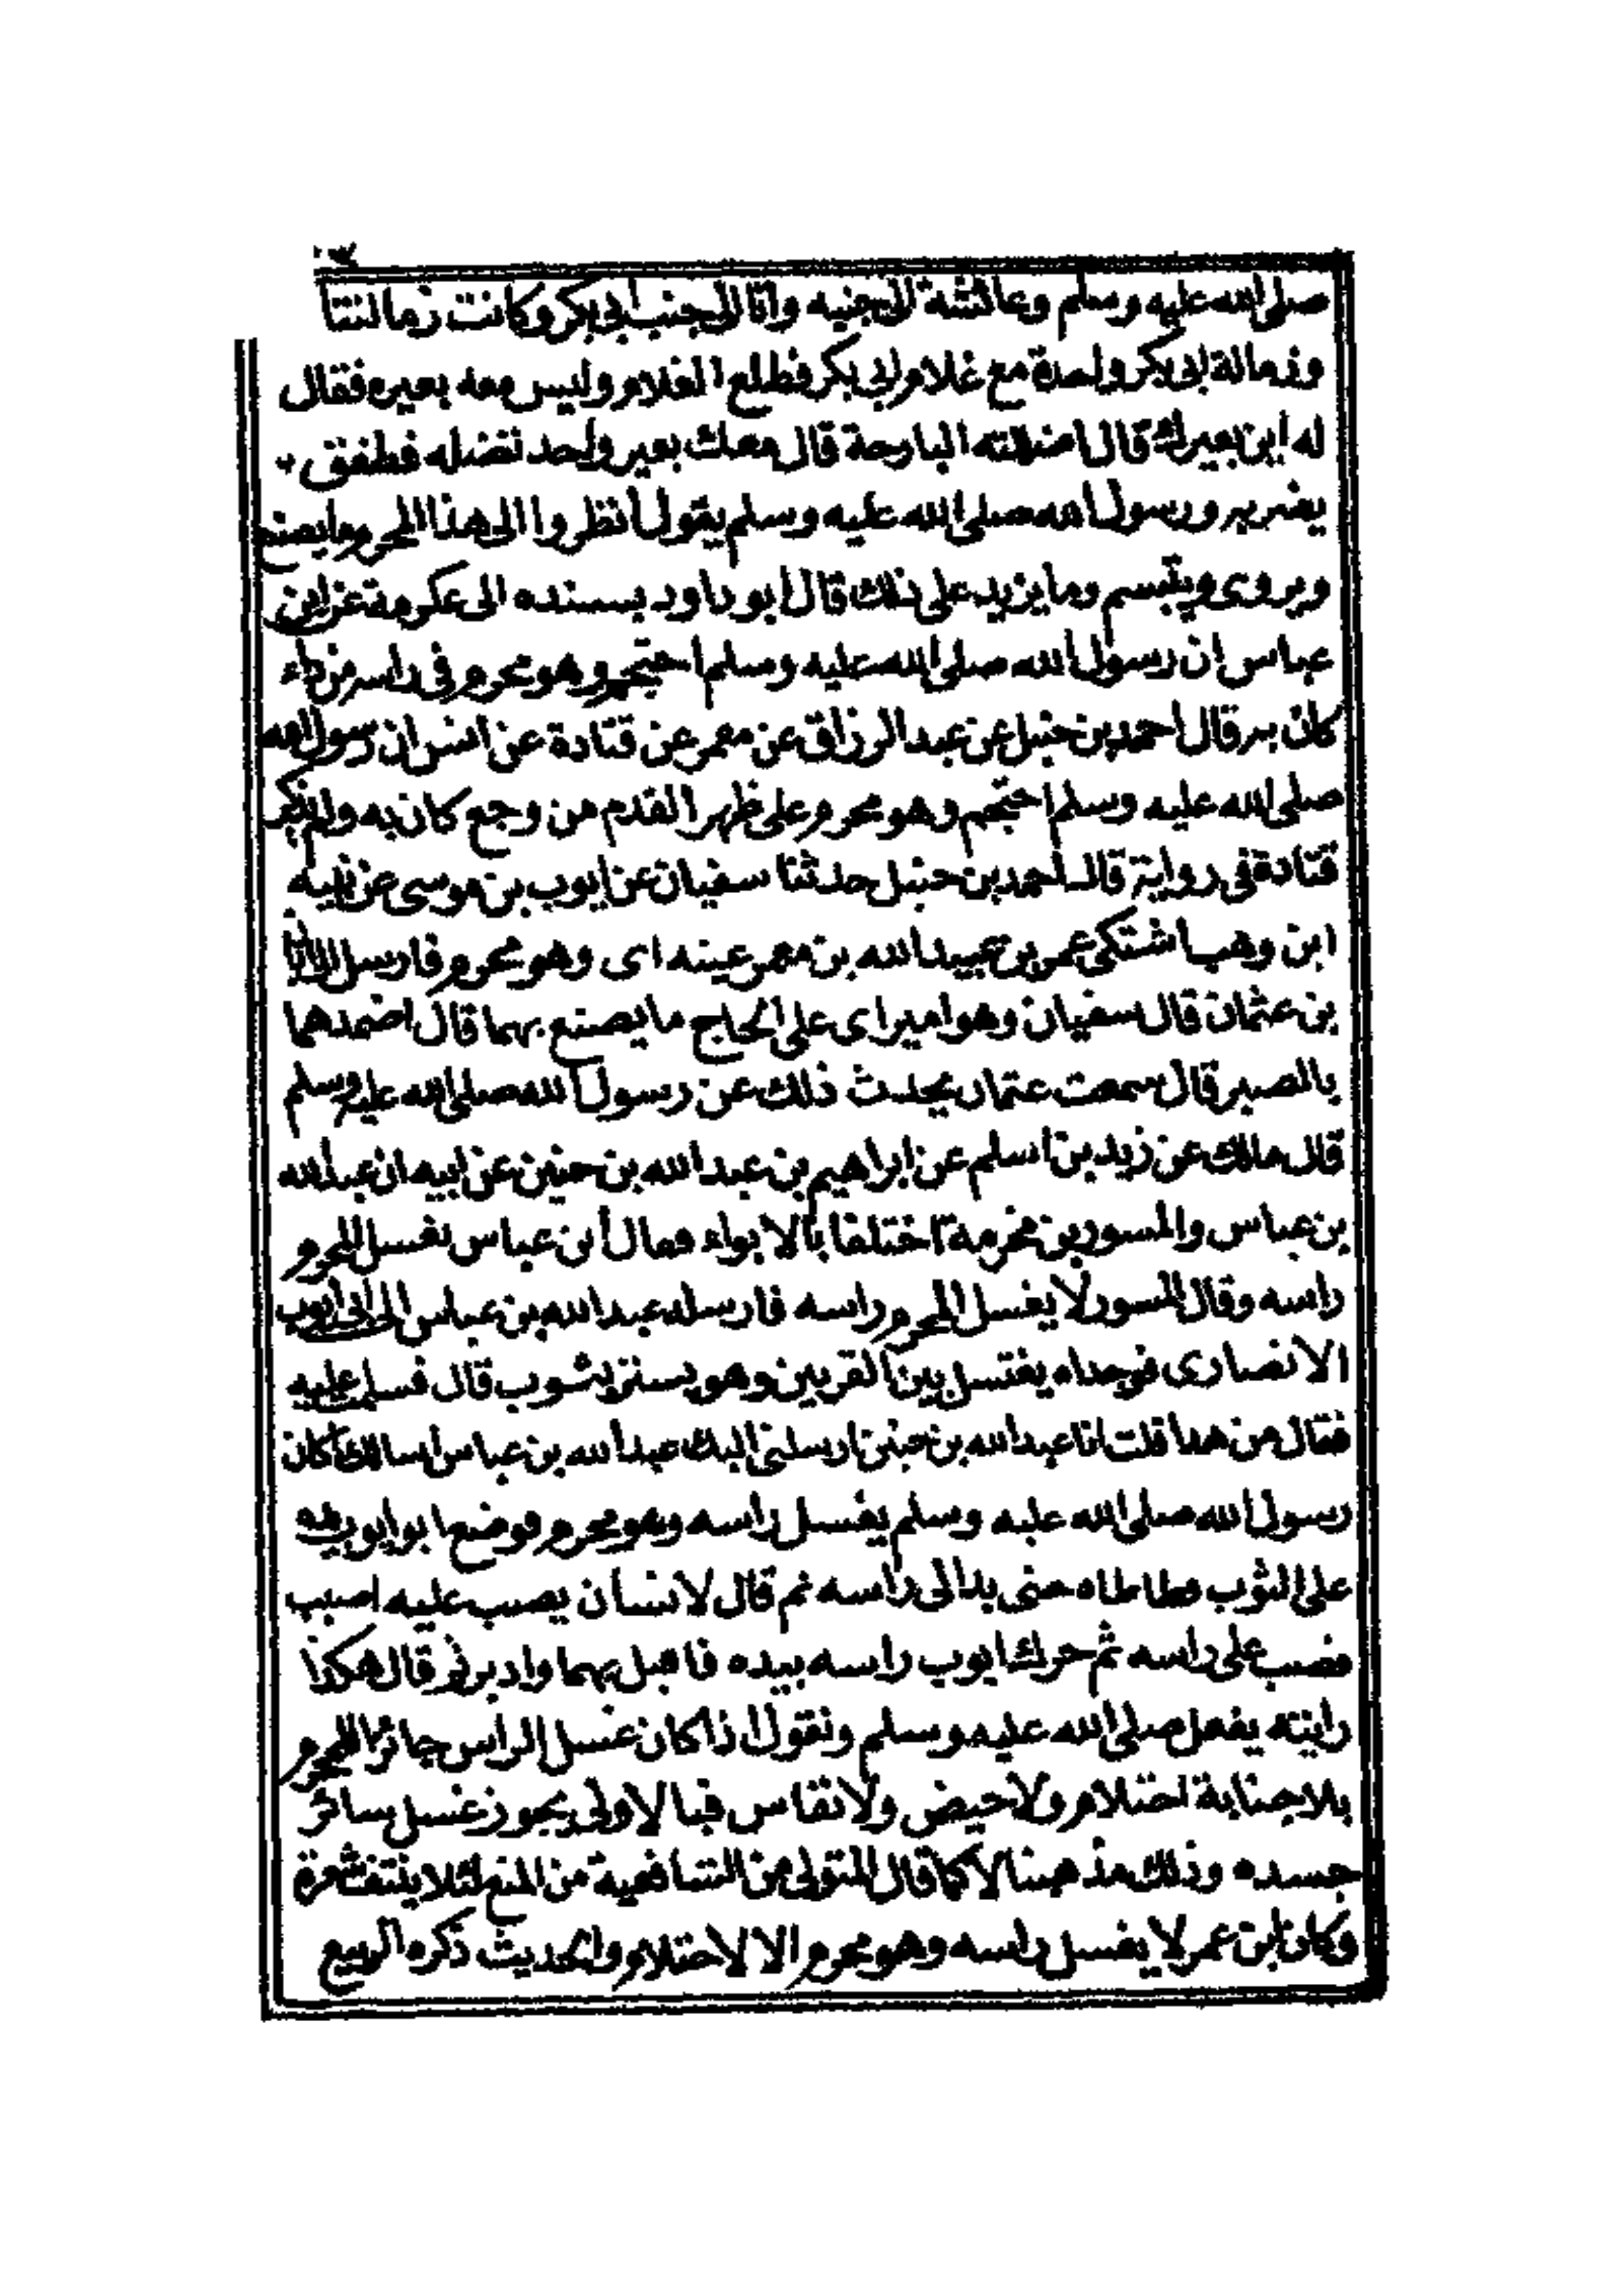 صلى الله عليه وسلم وعائشة الى جنبه وانا الى جنب ابى بكر وكانت زمالتنا
وزمالة ابى بكر واحدة مع غلام ابى بكر فطلع الغلام وليس معه بعيره فقال
له اين بعيرك قال اضللته البارحة قال معك بعير واحد تضله فطفق
يضربه ورسول الله صلى الله عليه وسلم يقول انظروا الى هذا المحرم ما يصنع
ويروى ويتبسم وما يزيد على ذلك قال ابو داود بسنده الى عكرمة عن ابن
عباس ان رسول الله صلى الله عليه وسلم احتجم وهو محرم فى راسه من داء
كان به قال احمد بن حنبل عن عبد الرزاق عن معمر عن قتادة عن انس ان رسول الله
صلى الله عليه وسلم احتجم وهو محرم على ظهر القدم من وجع كان به ولم يذكر
قتادة فى رواية قال احمد بن حنبل حدثنا سفيان عن ايوب بن موسى عن نبيه
ابن وهب اشتكى عمر بن عبيد الله بن معمر عينه اى وهو محرم فارسل الى ابان
بن عثمان قال سفيان وهو امير اى على الحاج ما يصنع بهما قال اضمدهما
بالصبر قال سمعت عثمان يحدث ذلك عن رسول الله صلى الله عليه وسلم
قال مالك عن زيد بن اسلم عن ابراهيم بن عبد الله بن حنين عن ابيه ان عبد الله
بن عباس والمسور بن مخرمة اختلفا بالابواء فقال ابن عباس يغسل المحرم
راسه وقال المسور لا يغسل المحرم راسه فارسله عبد الله بن عباس الى ابى ايوب
الانصارى فوجداه يغتسل بين القرنين وهو يستتر بثوب قال فسلم عليه
فقال من هذا قلت انا عبد الله بن حنين ارسلنى اليك عبد الله بن عباس اسالك كان
رسول الله صلى الله عليه وسلم يغسل راسه وهو محرم فوضع ابو ايوب يده
على الثوب فطاطاه حتى بدا لى راسه ثم قال لانسان يصب عليه اصبب
فصب على راسه ثم حرك ايوب راسه بيده فاقبل بهما وادبر ثم قال هكذا
رايته يفعل صلى الله عليه وسلم ونقول اذا كان غسل الراس جائزا للمحرم
بلا جنابة احتلام ولا حيض ولا نفاس فبالاولى يجوز غسل سائر
جسده وذلك مذهبنا لا كما قال المتولى من الشافعية من المنع لئلا ينتف شعره
وكان ابن عمر لا يغسل راسه وهو محرم الا لاحتلام والحديث ذكره الربيع